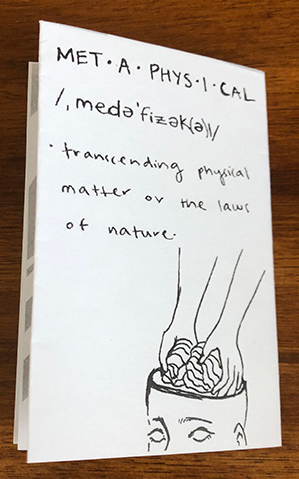 MET·A·PHYS·I·CAL
/ˌmedəˈfizək(ə)l/
· transcending physical
matter or the laws
of nature.